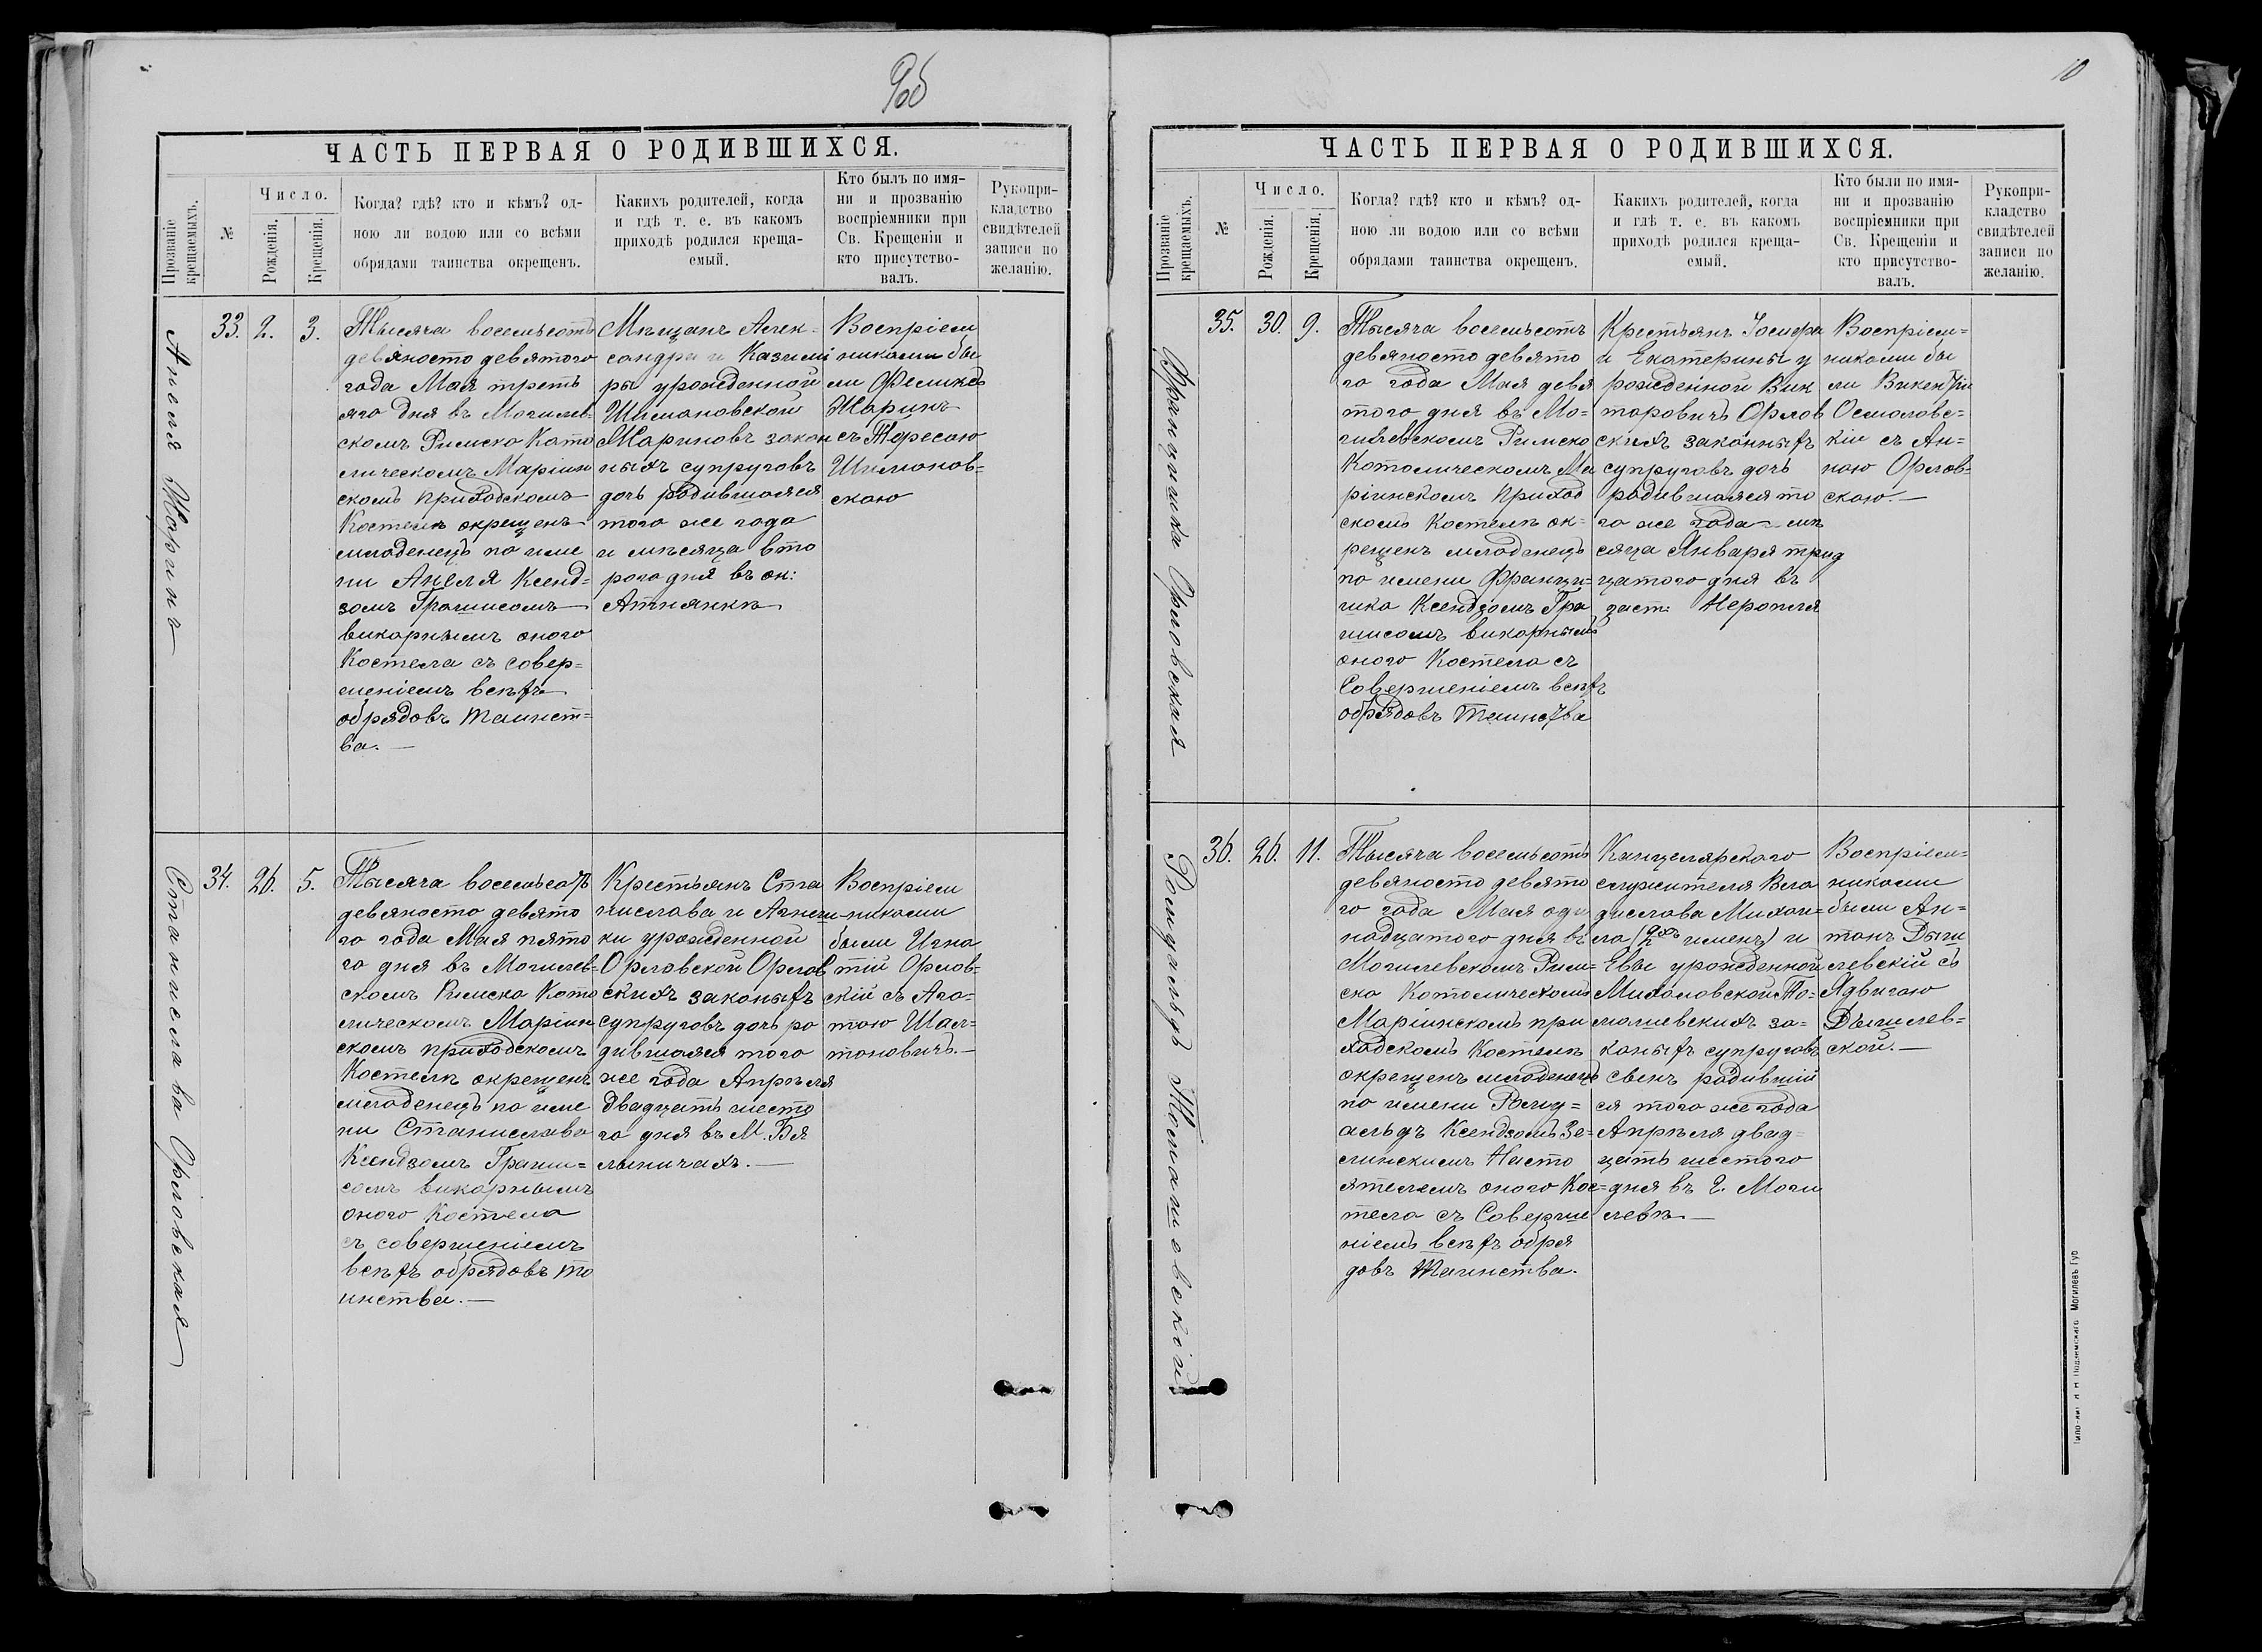 9об
ЧАСТЬ ПЕРВАЯ О РОДИВШИХСЯ.
Прозваніе
крещаемыхъ.
№
Число.
Рожденія.
Крещенія.
Когда? гдѣ? кто и кѣмъ? од-
ною ли водою или со всѣми
обрядами таинства окрещенъ.
Какихъ родителей, когда
и гдѣ т. е. въ какомъ
приходѣ родился креща-
емый.
Кто былъ по имя-
ни и прозванію
воспріемники при
Св. Крещеніи и
кто присутство-
валъ.
Рукопри-
кладство
свидѣтелей
записи по
желанію.
Анеля Жаринъ
33. 2. 3.
Тысяча восемьсотъ
девяносто девятого
года Мая треть
яго дня въ Могилев-
скомъ Римско Като
лическомъ Маріин
скомъ приходскомъ
Костелѣ окрещенъ
младенецъ по име
ни Анеля Ксенд-
зомъ Гралисомъ
викарнымъ оного
Костела съ совер=
шеніемъ всѣхъ
обрядовъ таинст=
ва.—
Мѣщанъ Алек-
сандра и Казимі
ры урожденной
Шимановской
Жариновъ закон
ныхъ супруговъ
дочь родившаяся
того же года
и мѣсяца вто
рого дня въ ок:
Атнянкѣ
Воспріем
никами бы
ли Феликсъ
Жаринъ
съ Тересою
Шиманов=
скою
Станислава Орловская
34. 26. 5.
Тысяча восемьсотъ
девяносто девято
го года Мая пято
го дня въ Могилев-
скомъ Римско Като
лическомъ Маріин
скомъ приходскомъ
Костелѣ окрещенъ
младенецъ по име
ни Станислава
Ксендзомъ Грали=
сомъ викарнымъ
оного Костела
съ совершеніемъ
всѣхъ обрядовъ та
инства.—
Крестьянъ Ста
нислава и Агнеш-
ки урожденной
Орловской Орлов
скихъ законыхъ
супруговъ дочь ро
дившаяся того
же года Апрѣля
двадцать шесто
го дня въ М. Бя
лыничахъ.—
Воспріем
никами
были Игна
тій Орлов-
скій съ Ага=
тою Шал-
тановичъ.—
10
ЧАСТЬ ПЕРВАЯ О РОДИВШИХСЯ.
Прозваніе
крещаемыхъ.
№
Число.
Рожденія.
Крещенія.
Когда? гдѣ? кто и кѣмъ? од-
ною ли водою или со всѣми
обрядами таинства окрещенъ.
Какихъ родителей, когда
и гдѣ т. е. въ какомъ
приходѣ родился креща-
емый.
Кто были по имя-
ни и прозванію
воспріемники при
Св. Крещеніи и
кто присутство-
валъ.
Рукопри-
кладство
свидѣтелей
записи по
желанію.
Францишка Орловская
35. 30. 9.
Тысяча восемьсотъ
девяносто девято
го года Мая девя
того дня въ Мо=
гилевскомъ Римско
Католическомъ Ма
ріинскомъ приход
скомъ Костелѣ ок=
рещенъ младенецъ
по имени Франци=
шка Ксендзомъ Гра
лисомъ викарнымъ
оного Костела съ
Совершеніемъ всѣхъ
обрядовъ Таинства
Крестьянъ Іосифа
и Екатерины у
рожденной Вик
торовичъ Орлов
скихъ законныхъ
супруговъ дочь
родившаяся то
го же года мѣ
сяца Января трид
цатого дня въ
заст: Неропля
Воспріем=
никами бы
ли Викентій
Осмоловс=
кій съ Ан=
ною Орлов-
скою.—
Ромуальдъ Томашевскій
36. 26. 11.
Тысяча восемьсотъ
девяносто девято
го года Мая оди
надцатого дня въ
Могилевскомъ Рим=
ско Католическомъ
Маріинскомъ при
ходскомъ Костелѣ
окрещенъ младенецъ
по имени Рому=
альдъ Ксендзомъ Зе=
линскимъ Насто
ятелемъ оного Кос=
тела съ Соверше
ніемъ всѣхъ обря
довъ Таинства.
Канцелярского
служителя Вла
дислава Михаи=
ла (2хъ именъ) и
Евы урожденной
Михаловской То=
машевскихъ за=
коныхъ супруговъ
сынъ родившій
ся того же года
Апрѣля двад=
цать шестого
дня въ г. Моги
левѣ—
Воспріем=
никами
были Ан=
тонъ Дыш
левскій съ
Ядвигою
Дышлев=
ской.—